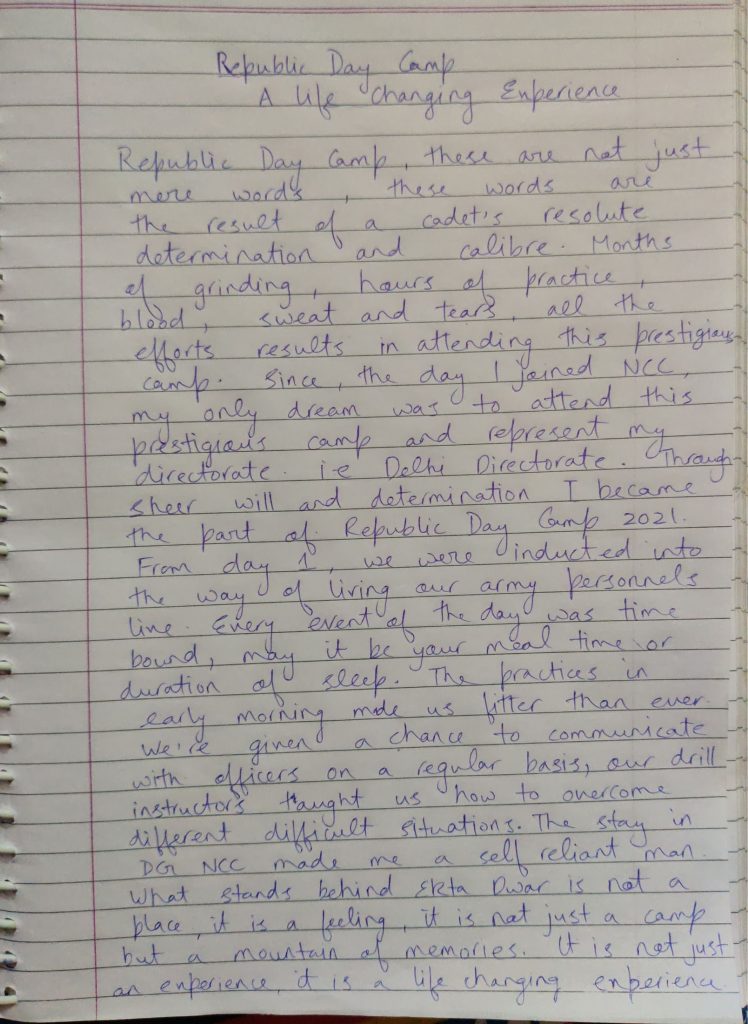 Republic Day Camp
A life Changing Experience
Republic Day Camp, these are not just
mere words, these words are
the result of a cadet's resolute
determination and calibre. Months
of grinding, hours of practice,
blood, sweat and tears, all the
efforts results in attending this prestigious
camp. Since, the day I joined NCC,
my only dream was to attend this
prestigious camp and represent my
directorate. i.e Delhi Directorate. Through
sheer will and determination I became
the part of Republic Day Camp 2021.
From day 1, we were inducted into
the way of living our army personnels
line. Every event of the day was time
bound, may it be your meal time or
duration of sleep. The practices in
early morning made us fitter than ever.
We're given a chance to communicate
with officers on a regular basis, our drill
instructors taught us how to overcome
different difficult situations. The stay in
DG NCC made me a self reliant man.
What stands behind Ekta Dwar is not a
place, it is a feeling, it is not just a camp
but a mountain of memories. It is not just
an experience, it is a life changing experience